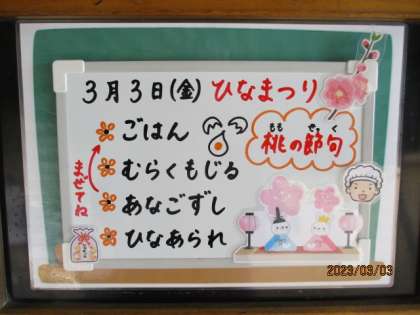 3月3日(金) ひなまつり
ごはん
むらくもじる
あなごずし
ひなあられ
まぜてね
もも せっく
桃の節句
2023/03/03